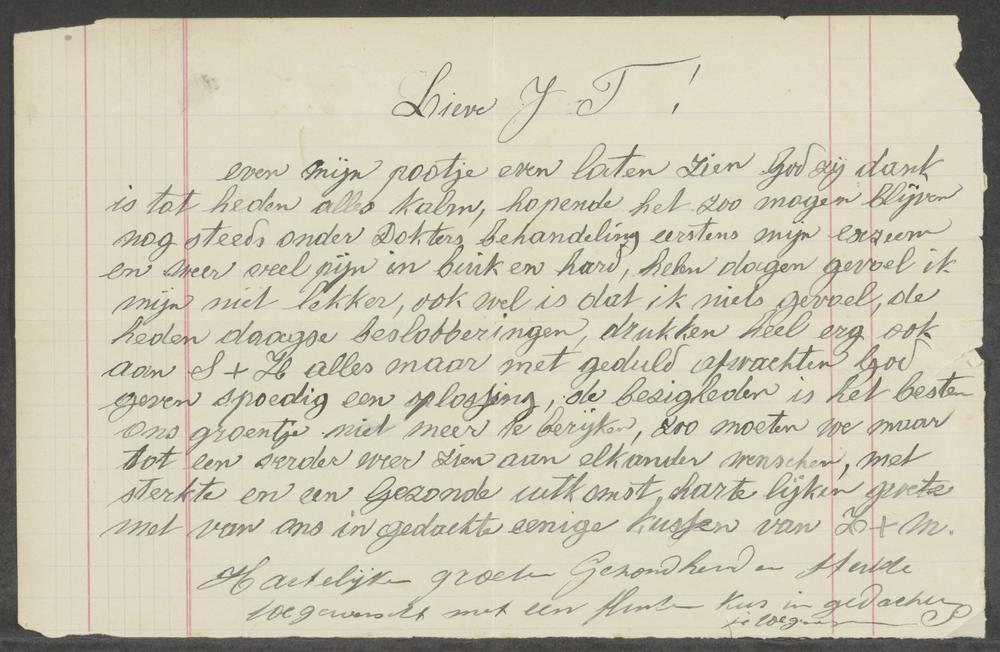 Lieve J T !
even mijn pootje even laten zien God zij dank
is tot heden alles kalm, hopende het zoo mogen blijven
nog steeds onder Dokters behandeling eerstens mijn exzeem
en weer veel pijn in buik en hard, helen dagen gevoel ik
mijn niet lekker, ook wel is dat ik niets gevoel, de
heden daagse beslobberingen, drukken heel erg ook
aan S + H alles maar met geduld afwachten God
geven spoedig een oplossing, de bezigheden is het besten
ons groentje niet meer te berijken, zoo moeten we maar
tot een verder weer zien aan elkander wenschen, met
sterkte en een Gezonde uitkomst, harte lijken groete
met van ons in gedachte eenige kussen van H + M.
Hartelijke groeten Gezondheid en Sterkte
toegewenscht met een flinken kus in gedachten